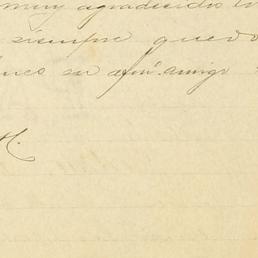 muy agradecido
siempre quedo
su afmo. amigo
H.